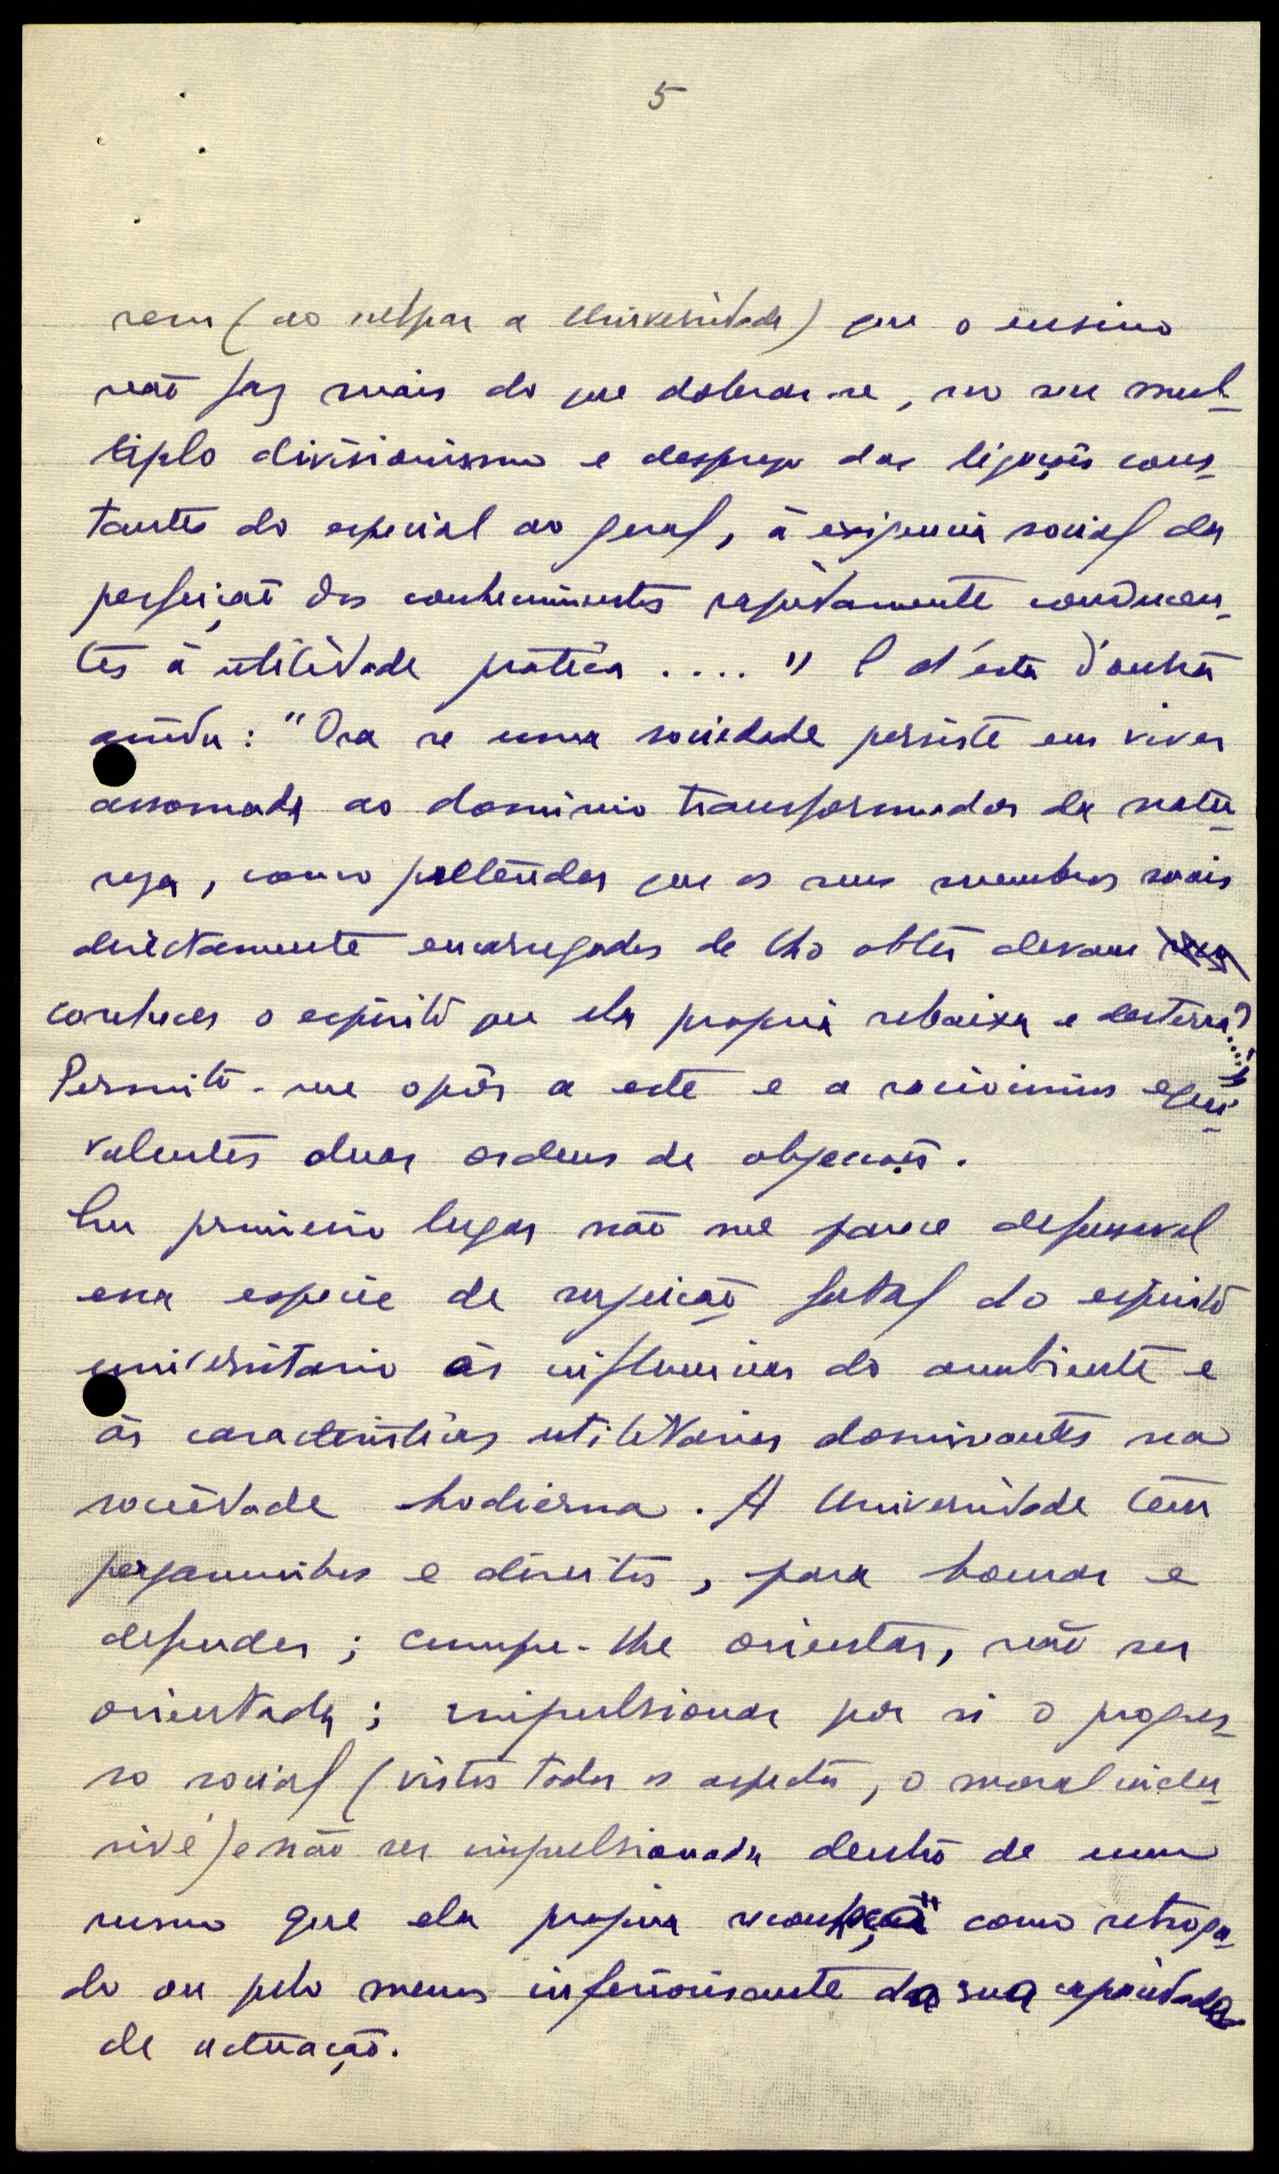 5
rem (ao culpar a Universidade) que o ensino
não faz mais do que dobrar-se, no seu mul-
tiplo divisionismo e desprezo das ligações cons-
tantes do especial ao geral, à exigencia social da
perfeição dos conhecimentos rapidamente conducen-
tes à utilidade pratica .... " E d'esta d'outra
ainda: "Ora se uma sociedade persiste em viver
assomada ao dominio transformador da natu-
reza, como pretender que os seus membros mais
directamente encarregados de lho obter devam
conhecer o espirito que ela propria rebaixa e desterra?...."
Permito-me opôr a este e a raciocinios equi-
valentes duas ordens de objecções.
Em primeiro lugar não me parece defensavel
essa especie de sujeição fatal do espirito
universitario ás influencias do ambiente e
ás caracteristicas utilitarias dominantes na
sociedade hodierna. A Universidade tem
pergaminhos e direitos, para honrar e
defender; cumpre-lhe orientar, não ser
orientada; impulsionar por si o progres-
so social (vistos todos os aspectos, o moral inclu-
sivé) e não ser impulsionada dentro de um
rumo que ela propria reconheça como retroga-
do ou pelo menos inferiorisante da sua capacidade
de actuação.